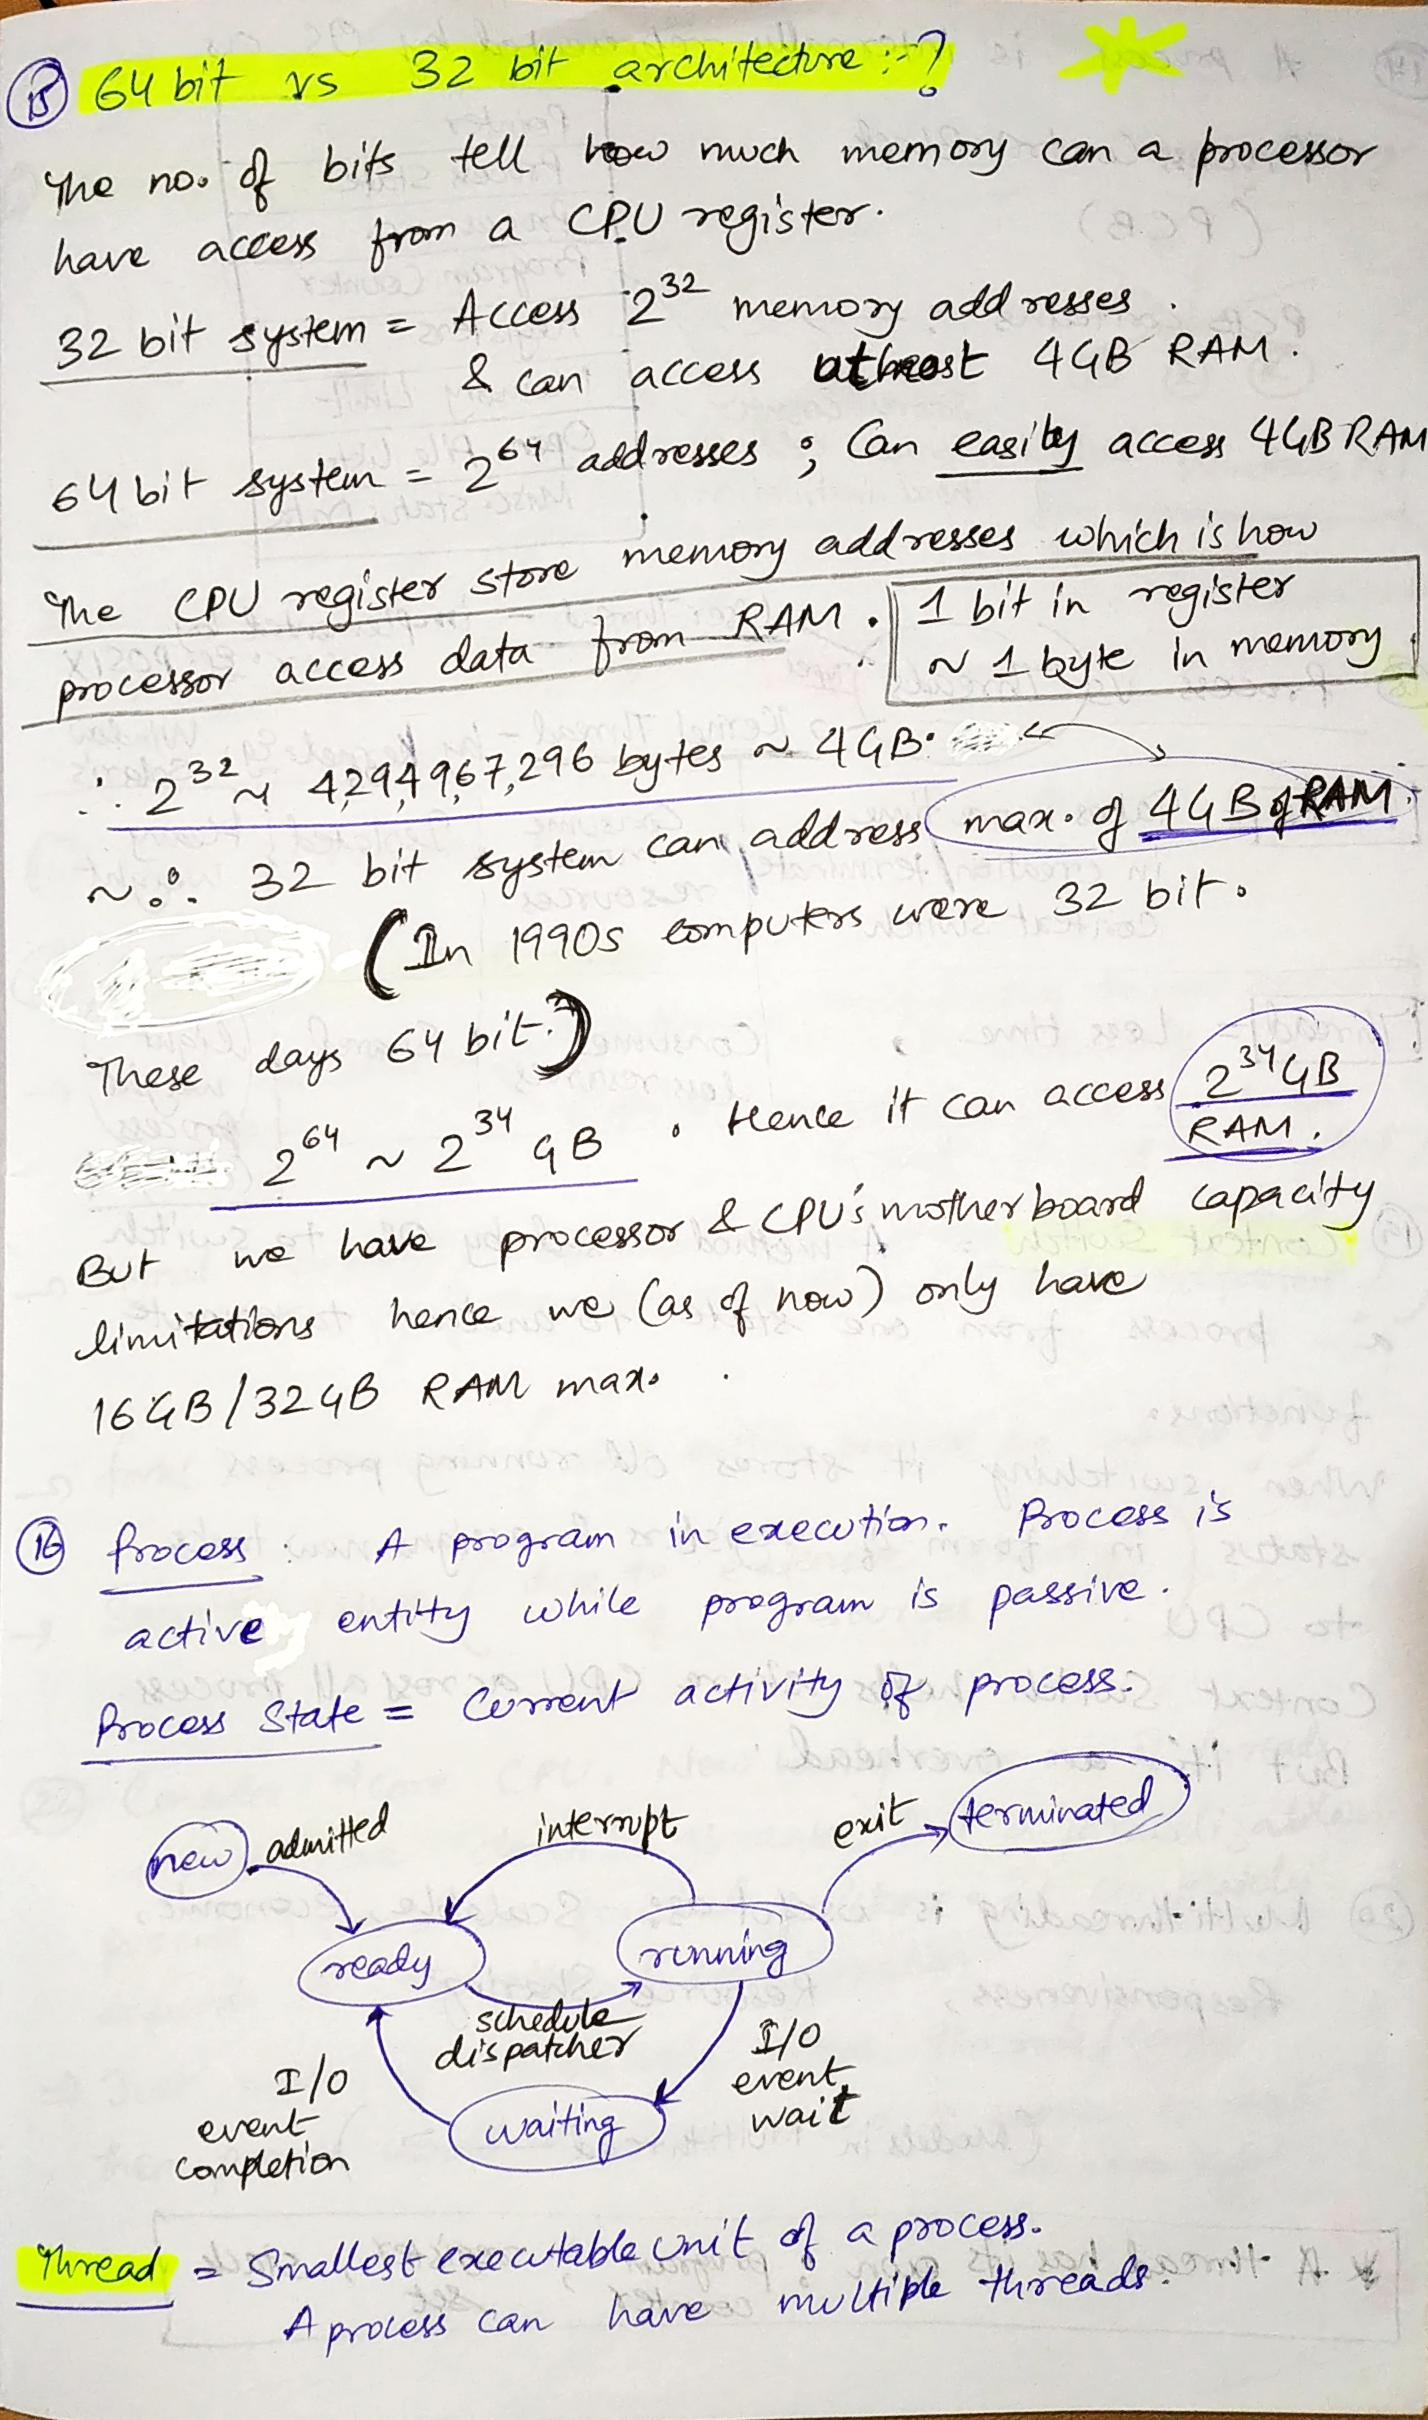 15 64 bit vs 32 bit architecture :- ?
The no. of bits tell how much memory can a processor
have access from a CPU register.
32 bit system = Access 2^32 memory addresses.
& can access atmost 4GB RAM.
64 bit system = 2^64 addresses ; Can easily access 4GB RAM
The CPU register store memory addresses which is how
processor access data from RAM.
1 bit in register
~ 1 byte in memory
∴ 2^32 ~ 4,294,967,296 bytes ~ 4GB.
~ ∴ 32 bit system can address max. of 4GB of RAM.
(In 1990s computers were 32 bit.
These days 64 bit.)
2^64 ~ 2^34 GB . Hence it can access 2^34 GB
RAM.
But we have processor & CPU's motherboard capacity
limitations hence we (as of now) only have
16GB/32GB RAM max.
16 Process : A program in execution. Process is
active entity while program is passive.
Process State = Current activity of process.
new admitted interrupt exit terminated
ready running
schedule
dispatcher
I/O
event
wait
I/O
event
completion
waiting
Thread = Smallest executable unit of a process.
A process can have multiple threads.